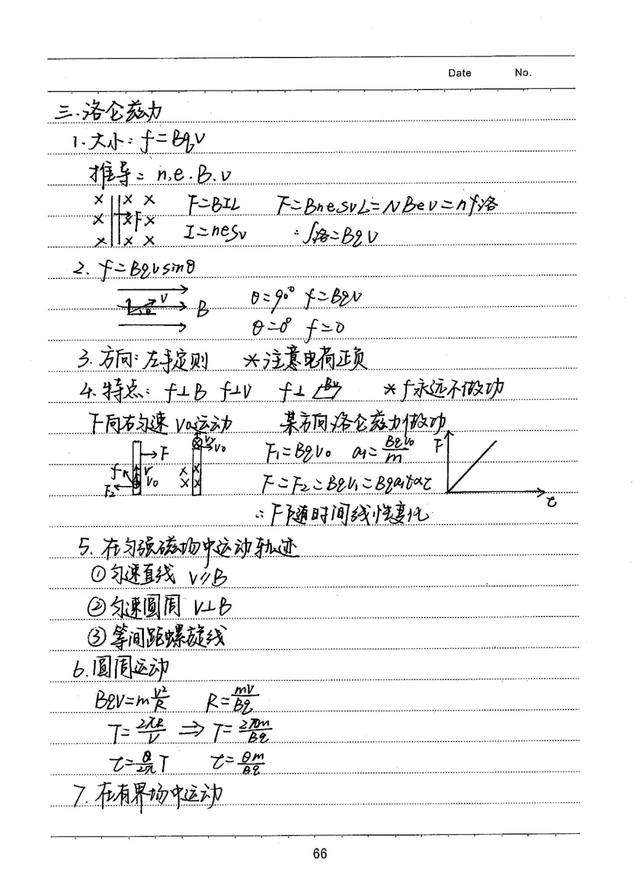 Date No.
三.洛仑兹力
1.大小: f=Bqv
推导: n.e.B.v
F=BIL F=BnesvL=NBev=nf洛
I=nesv ∴f洛=Bqv
2. f=Bqvsinθ
θ=90° f=Bqv
θ=0° f=0
3.方向:左手定则 *注意电荷正负
4.特点: f⊥B f⊥v f⊥ Bv *f永远不做功
F向右匀速v0运动 某方向洛仑兹力做功
F1=Bqv0 a1=Bqv0/m
F=F2=Bqv1=Bqa1t∝t
∴F随时间线性变化
5.在匀强磁场中运动轨迹
①匀速直线 v//B
②匀速圆周 v⊥B
③等间距螺旋线
6.圆周运动
Bqv=m v²/R R=mv/Bq
T=2πR/v ⇒ T=2πm/Bq
t=θ/2π T t=θm/Bq
7.在有界场中运动
66